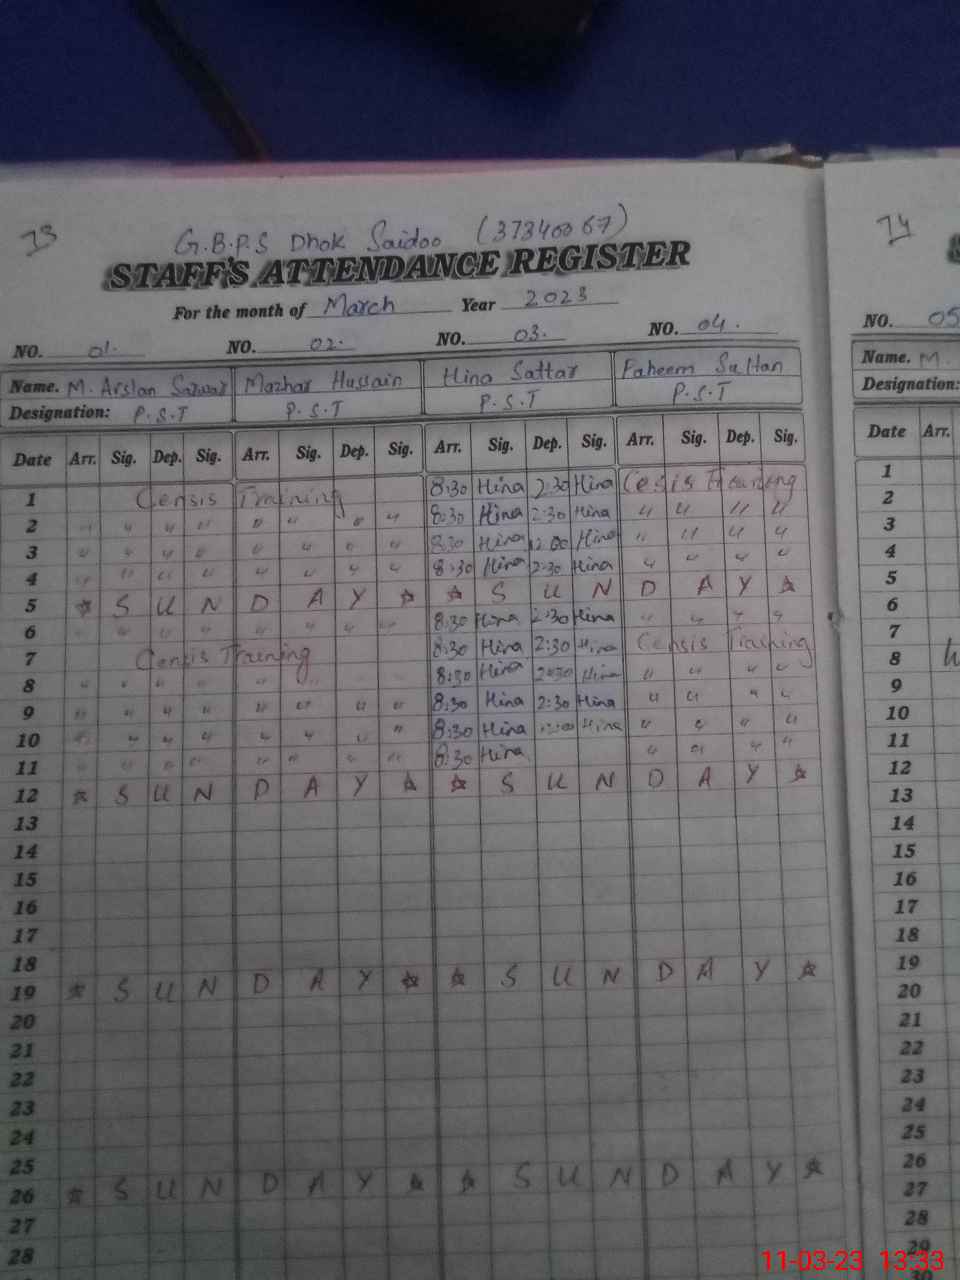 73
G.B.P.S Dhok Saidoo (37340067)
STAFF'S ATTENDANCE REGISTER
For the month of March Year 2023
NO. 01. NO. 02. NO. 03. NO. 04.
Name. M. Arslan Sarwar Mazhar Hussain Hina Sattar Faheem Sultan
Designation: P.S.T P.S.T P.S.T P.S.T
Date Arr. Sig. Dep. Sig. Arr. Sig. Dep. Sig. Arr. Sig. Dep. Sig. Arr. Sig. Dep. Sig.
1 Censis Training 8:30 Hina 2:30 Hina Cesis Training
2 " " " " " " " " 8:30 Hina 2:30 Hina " " " "
3 " " " " " " " " 8:30 Hina 12:00 Hina " " " "
4 " " " " " " " " 8:30 Hina 2:30 Hina " " " "
5 ☆ S U N D A Y ☆ ☆ S U N D A Y ☆
6 " " " " " " " " 8:30 Hina 2:30 Hina " " " "
7 Censis Training 8:30 Hina 2:30 Hina Censis Training
8 " " " " " " 8:30 Hina 2:30 Hina " " " "
9 " " " " " " " " 8:30 Hina 2:30 Hina " " " "
10 " " " " " " " " 8:30 Hina 12:00 Hina " " " "
11 " " " " " " " " 8:30 Hina " " " "
12 ☆ S U N D A Y ☆ ☆ S U N D A Y ☆
13
14
15
16
17
18
19 ☆ S U N D A Y ☆ ☆ S U N D A Y ☆
20
21
22
23
24
25
26 ☆ S U N D A Y ☆ ☆ S U N D A Y ☆
27
28
74
NO. 05
Name. M.
Designation:
Date Arr.
1
2
3
4
5
6
7
8
9
10
11
12
13
14
15
16
17
18
19
20
21
22
23
24
25
26
27
28
29
30
11-03-23 13:33